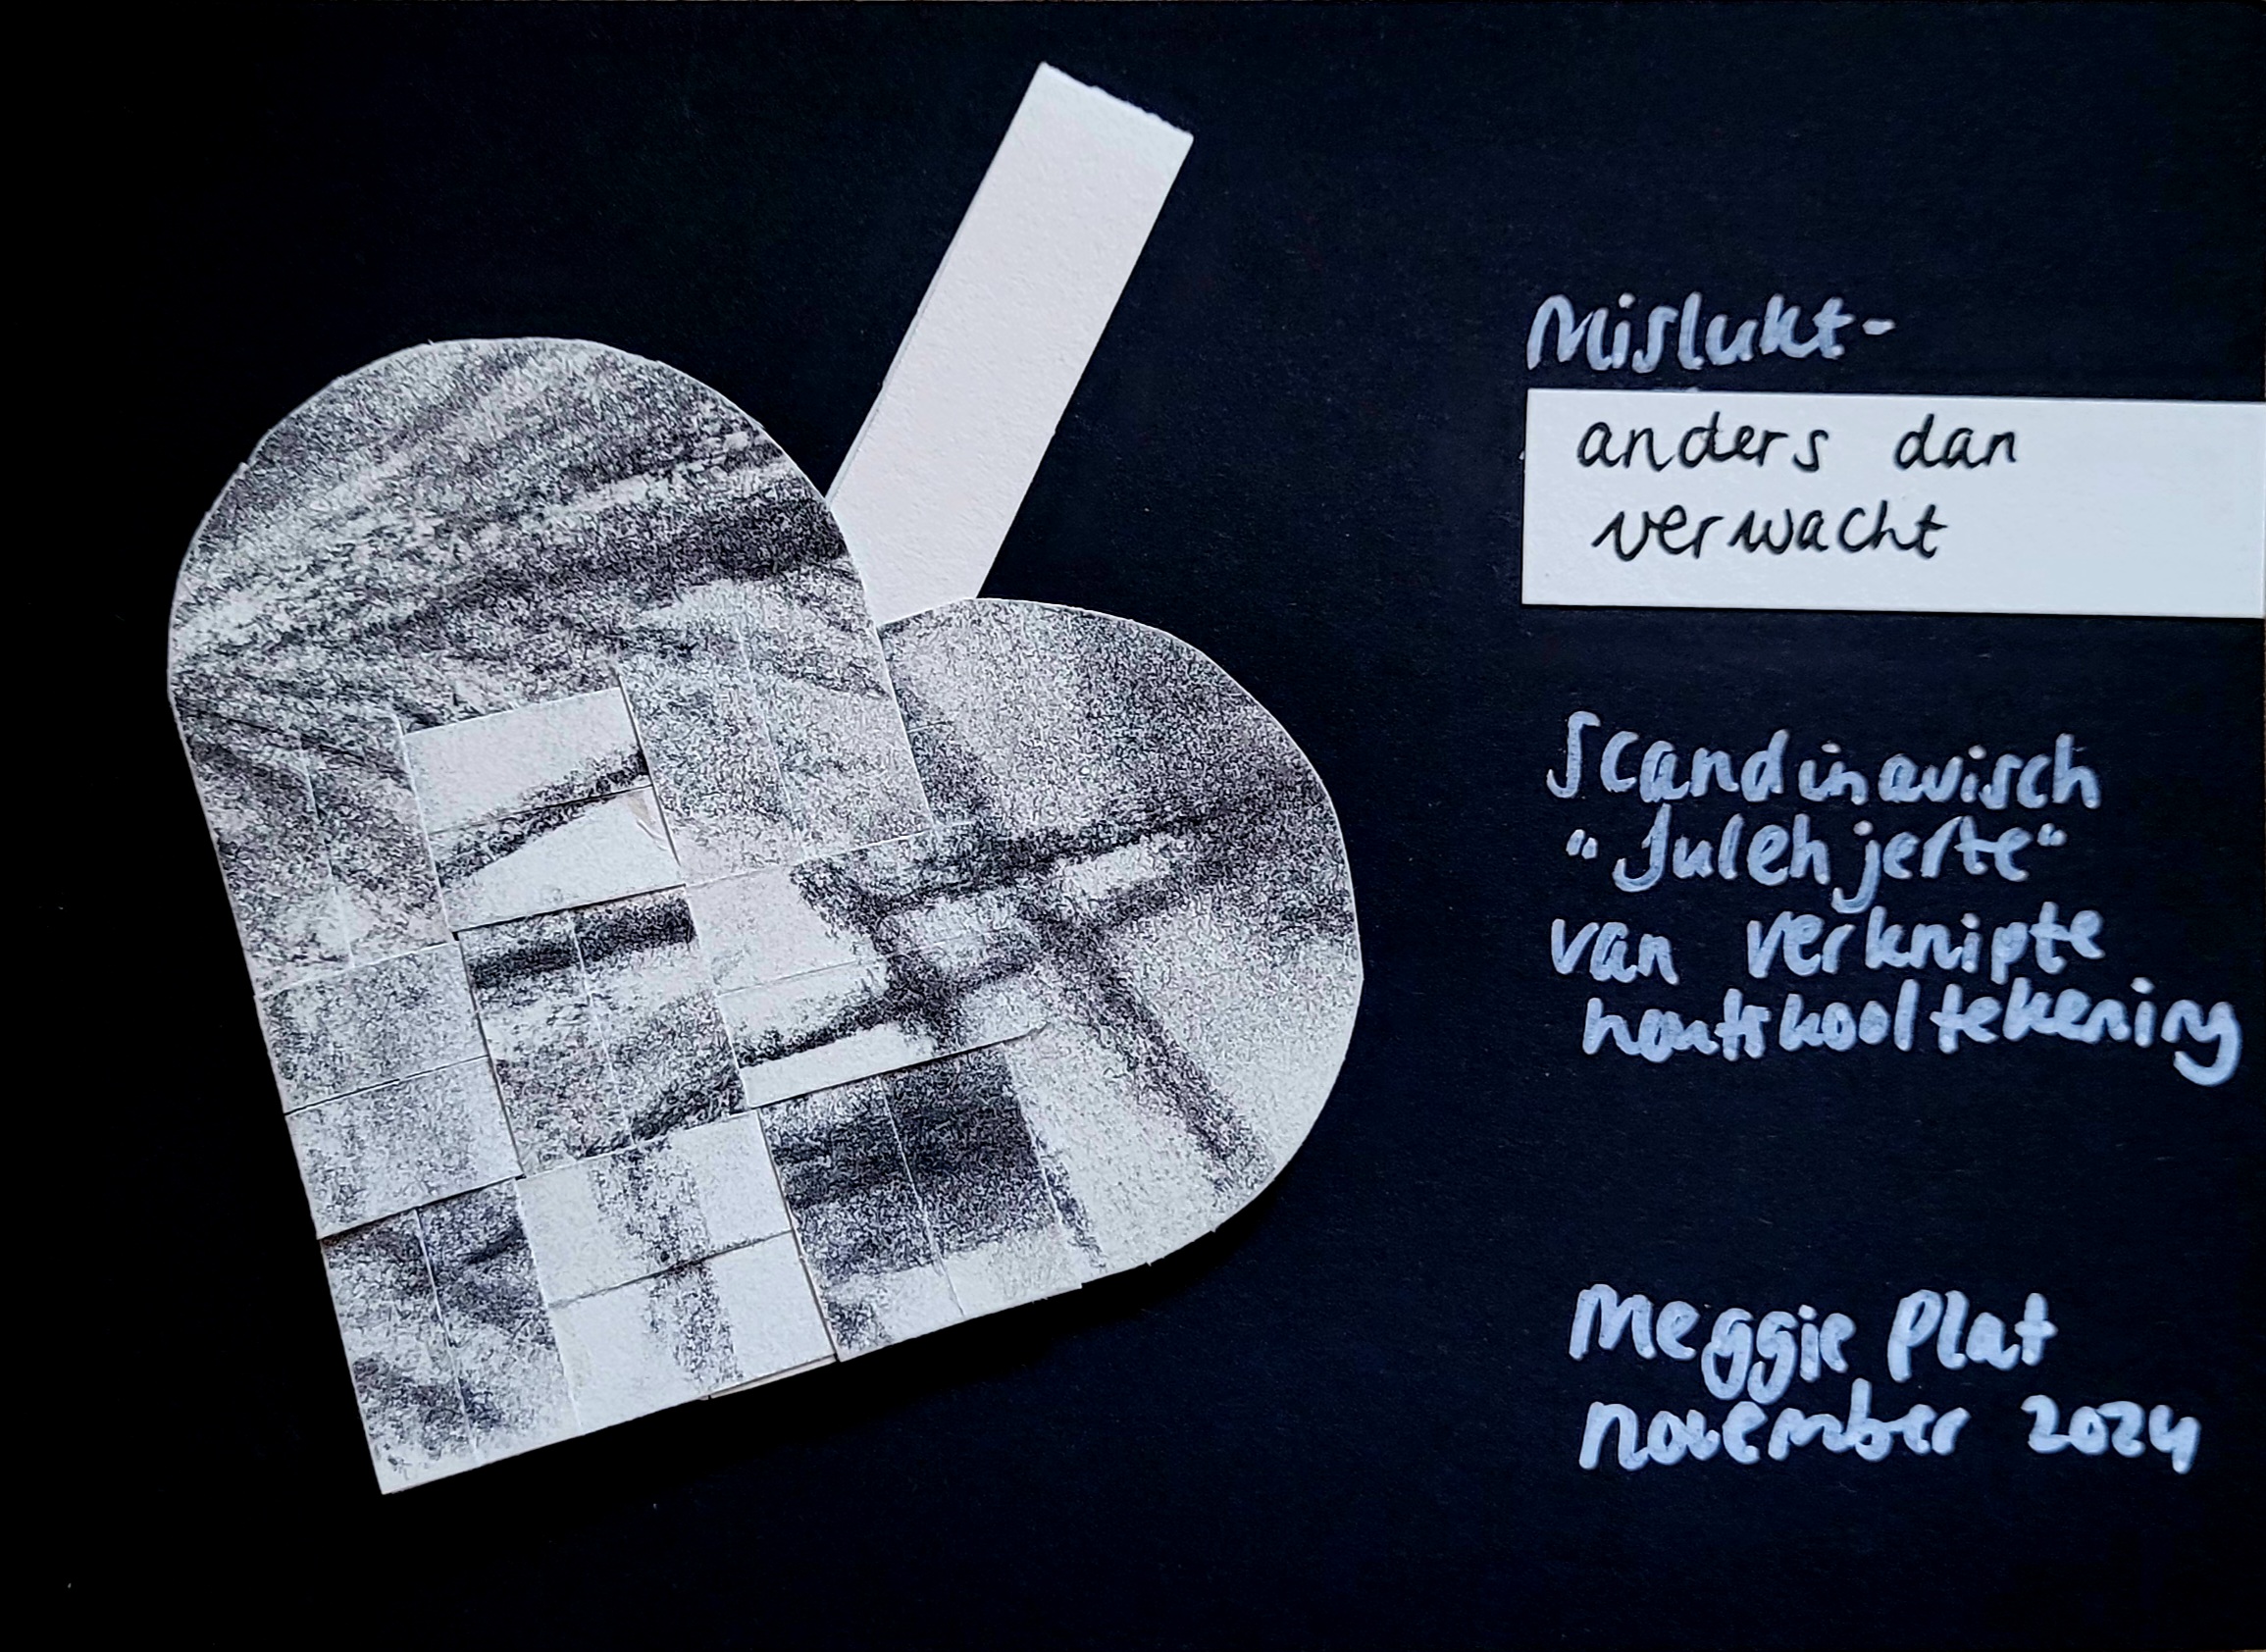 Mislukt-
anders dan
verwacht
Scandinavisch
"Julehjerte"
van verknipte
houtskooltekening
Meggie Plat
november 2024